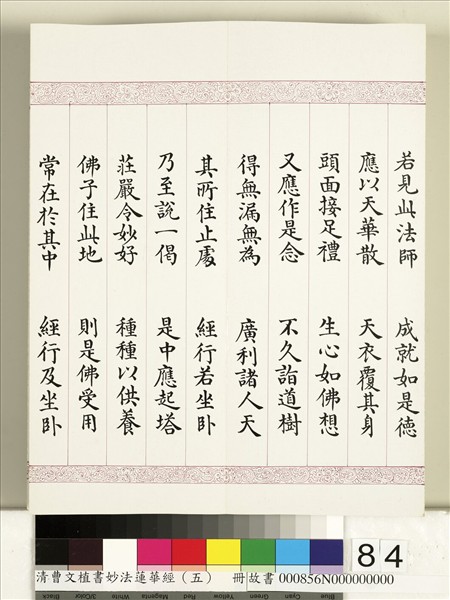 若見此法師　成就如是德
應以天華散　天衣覆其身
頭面接足禮　生心如佛想
又應作是念　不久詣道樹
得無漏無為　廣利諸人天
其所住止處　經行若坐卧
乃至說一偈　是中應起塔
莊嚴令妙好　種種以供養
佛子住此地　則是佛受用
常在於其中　經行及坐卧
84
清曹文植書妙法蓮華經（五）　冊 故書 000856N000000000
Black 3/Color White Magenta Red Yellow Green Cyan Blue